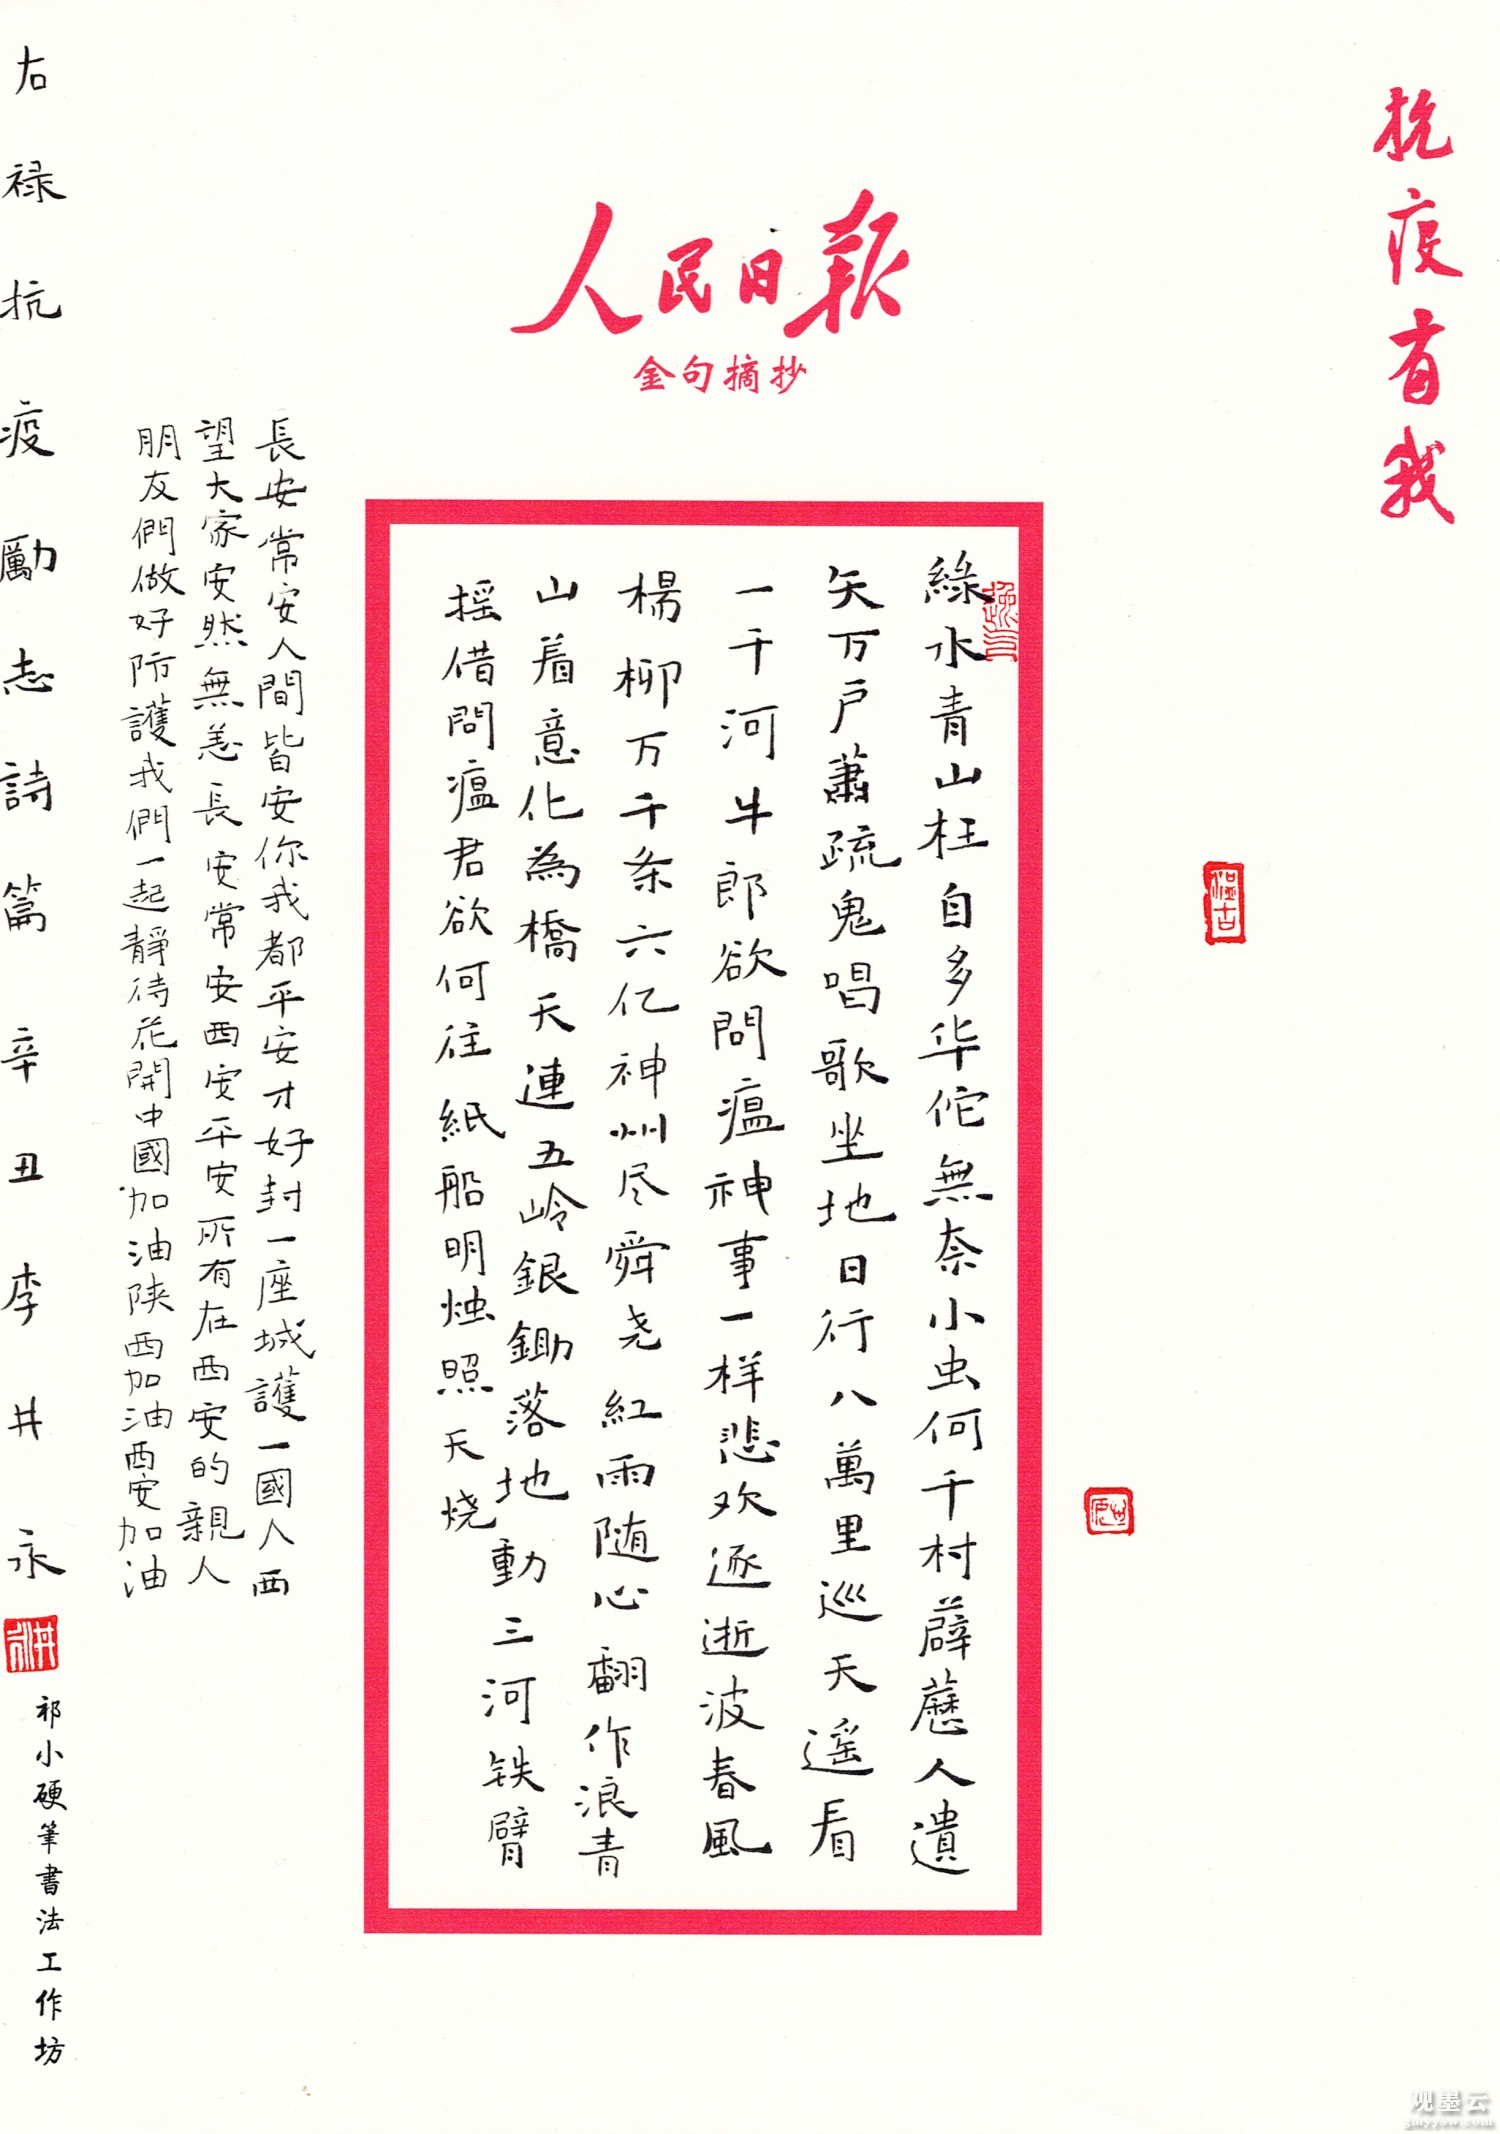 抗疫有我
人民日報
金句摘抄
綠水青山枉自多华佗無奈小虫何千村薜人遺
矢万户蕭疏鬼唱歌坐地日行八萬里巡天遥看
一千河牛郎欲問瘟神事一样悲欢逐逝波春風
楊柳万千条六亿神州尽舜尧紅雨随心翻作浪青
山着意化為橋天連五岭銀鋤落地動三河铁臂
摇借問瘟君欲何往紙船明烛照天烧
長安常安人間皆安你我都平安才好封一座城護一國人西
望大家安然無恙長安常安西安平安所有在西安的親人
朋友們做好防護我們一起靜待花開中國加油陕西加油西安加油
右禄抗疫勵志詩篇辛丑李井永
祁小硬筆書法工作坊
观墨云